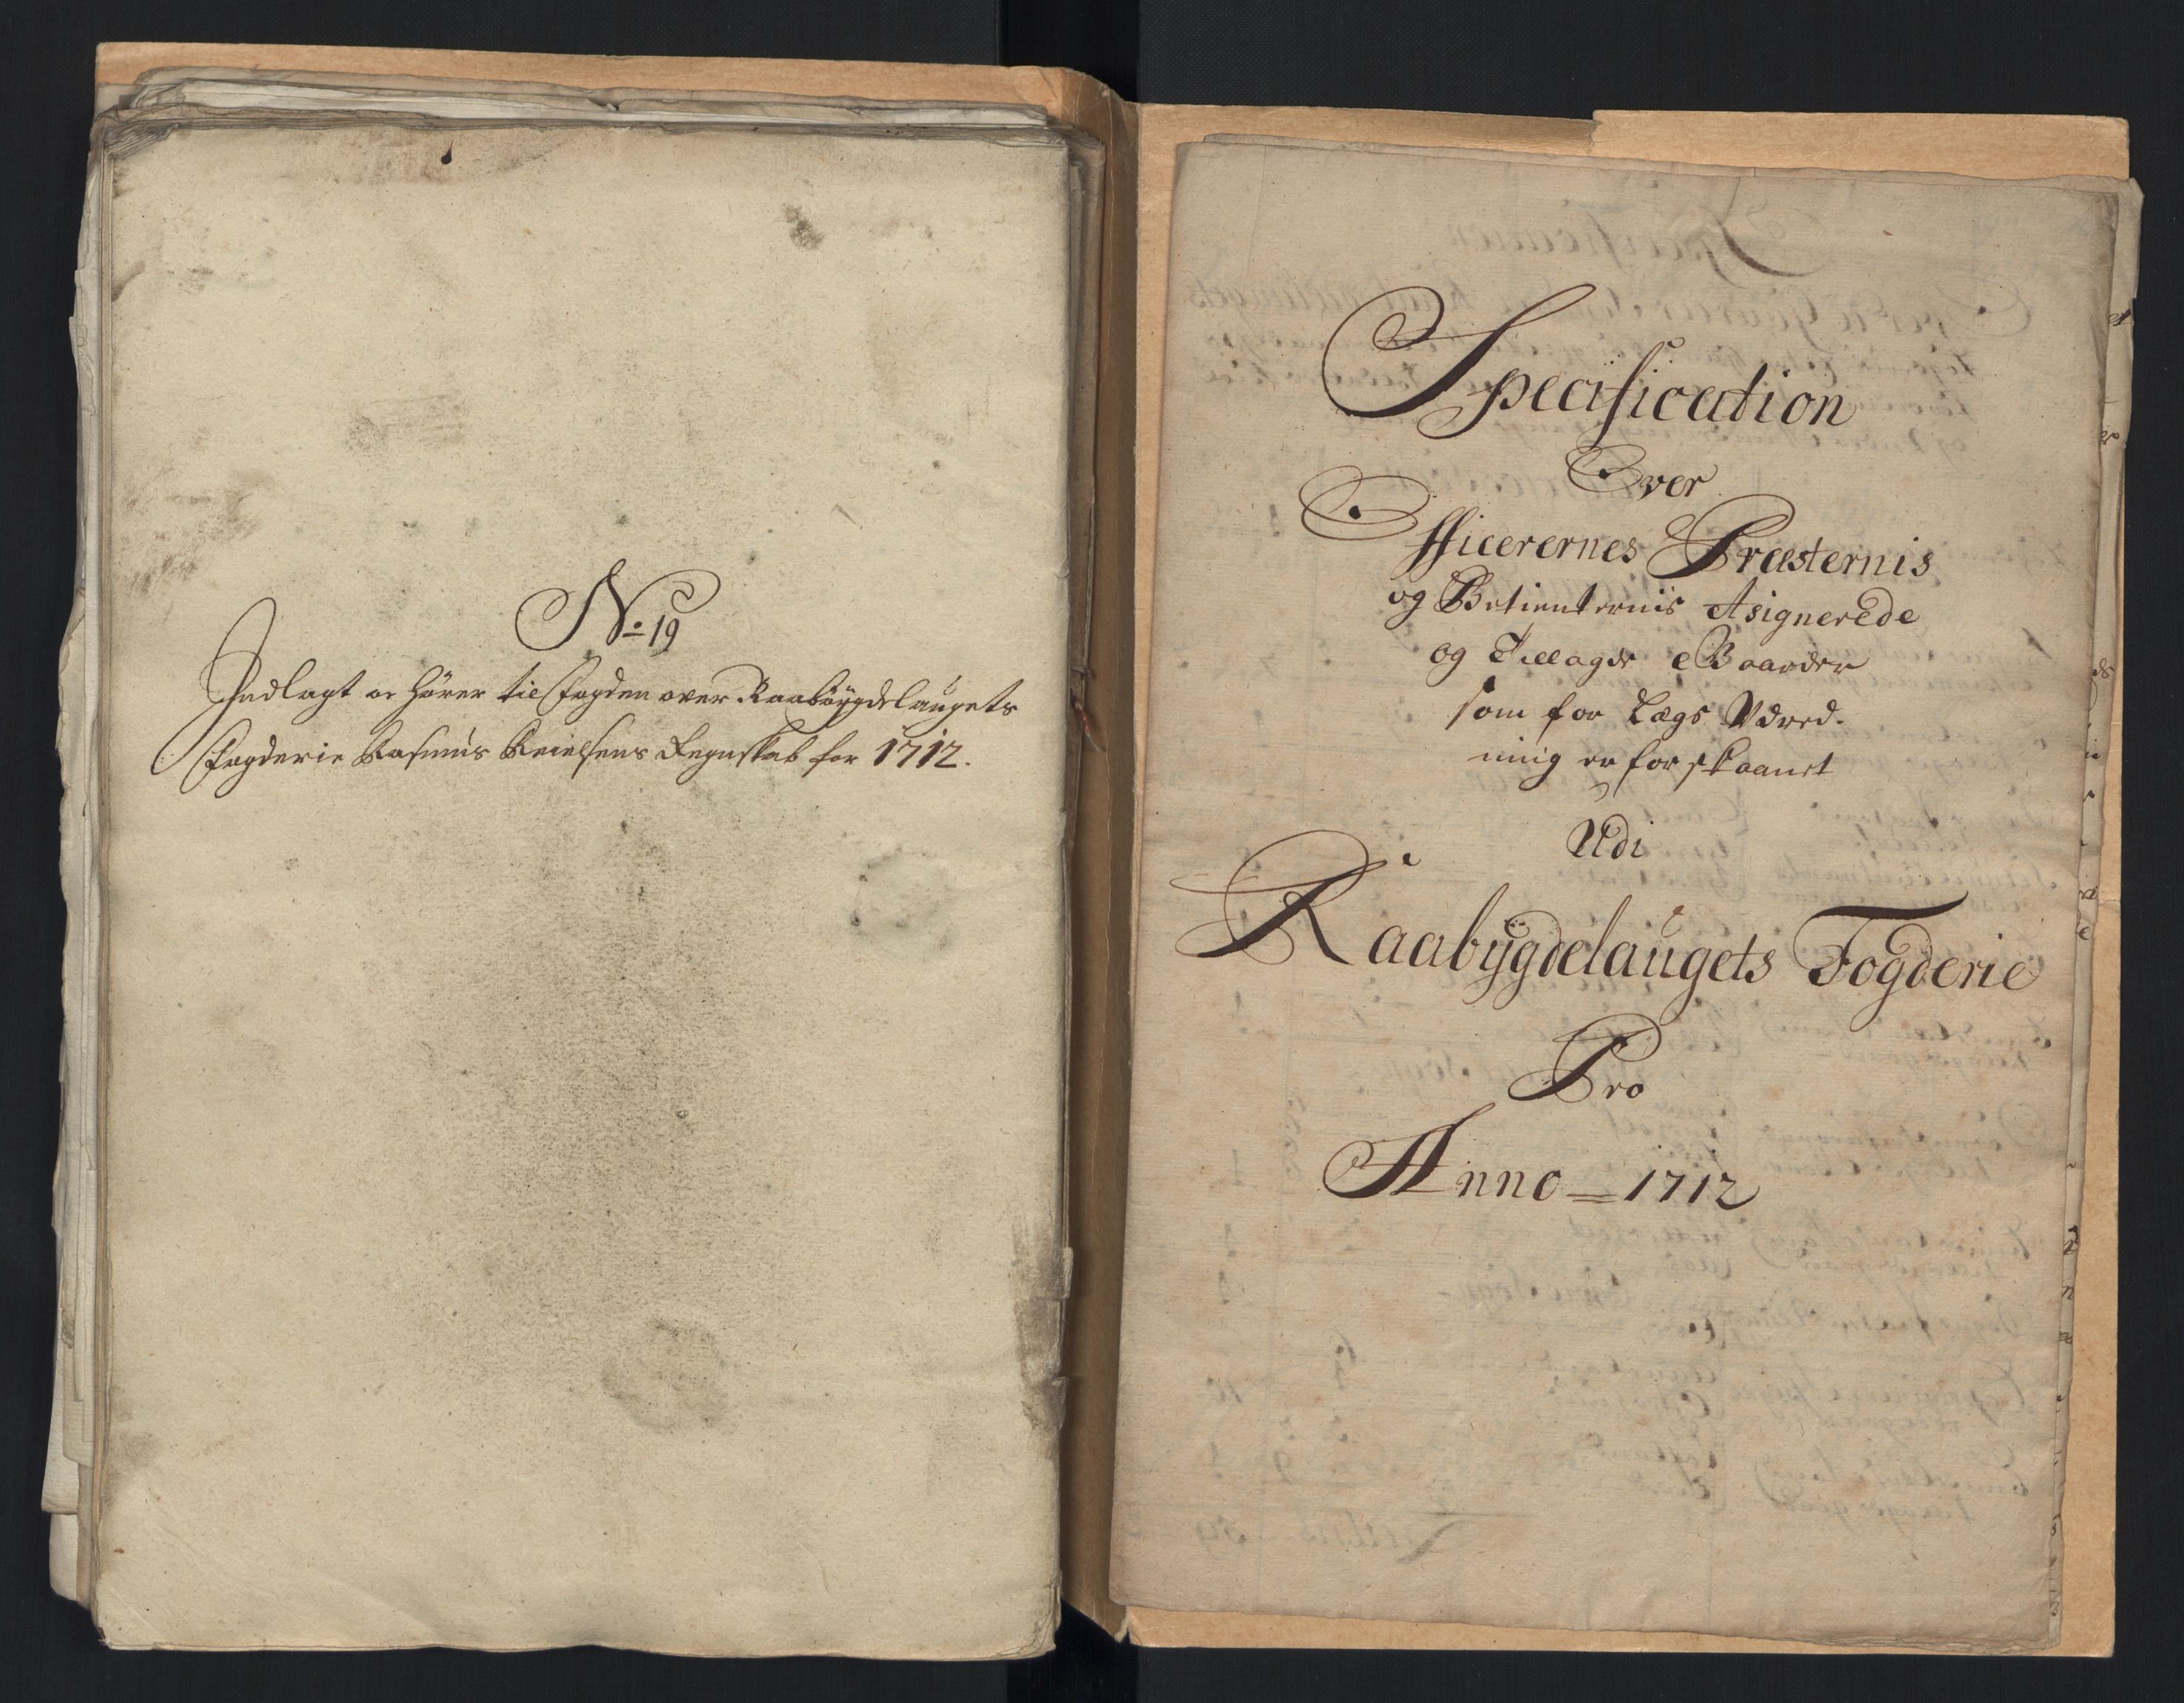 No 19
Indlagt oc hörer til Fogden over Raaböygdelaugets
Fogderie Rasmus Keielsens Regnskab for 1712.
Specification
Over
Officerernes Præsternis
og Betienternis Asignerede
og Tillagde Gaarder
som for Lægs Udred-
ning er forskaanet
Udi
Raabÿgdelaugets Fogderie
Pro
Anno 1712